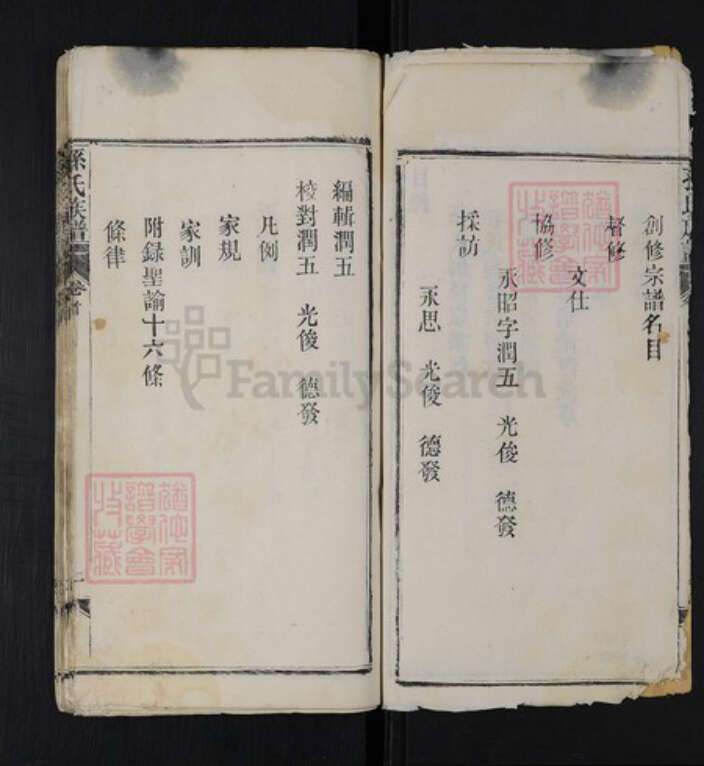 創修宗譜名目
督修
文仕
協修
永昭字潤五 光俊 德發
採訪
永思 光俊 德發
編輯潤五
校對潤五 光俊 德發
凡例
家規
家訓
附錄聖諭十六條
條律
孫氏族譜
卷首
一
FamilySearch